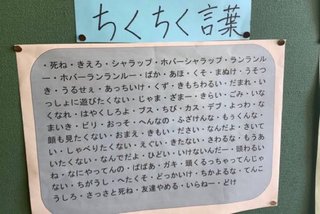 ちくちく言葉
・死ね・きえろ・シャラップ・ホバーシャラップ・ランランル
ー・ホバーランランルー・ばか・あほ・くそ・まぬけ・うそつ
き・うるせぇ・あっちいけ・くず・きもちわるい・だまれ・い
っしょに遊びたくない・じゃま・ざまー・きらい・ごみ・いな
くなれ・はやくしろよ・ブス・ちび・カス・デブ・よっわ・な
まいき・ビリ・おっそ・へんなの・ふざけんな・もうくんな・
顔も見たくない・おまえ・きもい・ださい・なんだよ・さいて
い・しゃべりたくない・えぐい・きたない・さわるな・もうあ
いたくない・なんでだよ・ひどい・いけないんだー・頭わるい
ね・なにやってんの・ばばあ・ガキ・頭くるっちゃってんじゃ
ない・ちがうし・へたくそ・どっかいけ・ちかよるな・てんこ
うしろ・さっさと死ね・友達やめる・いらねー・どけ